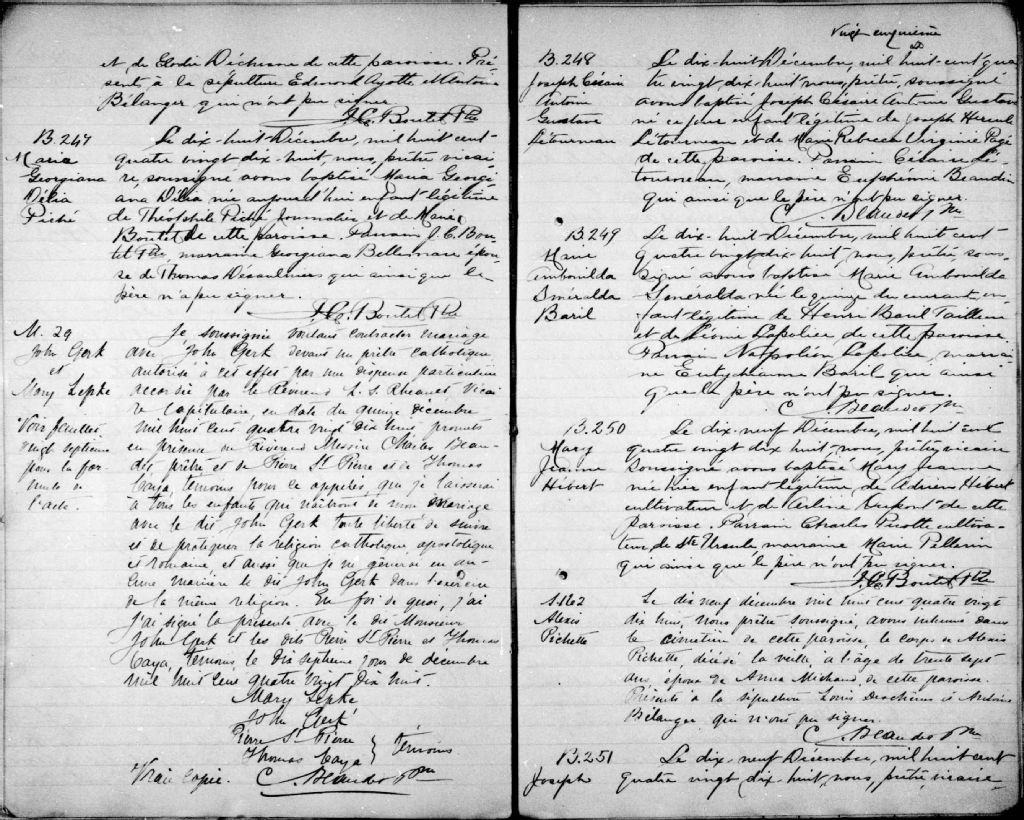 et de Elodie Déchesne de cette paroisse. Pré-
sents à la sépulture Edmond Ayotte
Bélanger qui n'ont pu signer
J. C. Boutet Ptre
B. 247
Maria
Georgiana
Délia
Piché
Le dix-huit Décembre, mil huit cent-
quatre vingt dix-huit, nous, prêtre vicai-
re, soussigné avons baptisé Maria Georgi
ana Délia née aujourd'hui enfant légitime
de Théophile Piché Journalier et de Marie
Boutet de cette paroisse. Parrain J. C. Bou-
tet Ptre, marraine Georgiana Bellemare épou
se de Thomas Désaulniers qui ainsi que le
père n'a pu signer.
J. C. Boutet Ptre
M. 29
John Gerk
et
Mary Lepke
Voir feuillet
vingt septième
pour la for
mule de
l'acte.
Je soussignée voulant contracter mariage
avec John Gerk devant un prêtre catholique
autorisé à cet effet par une dispense particulière
accordée par le Révérend L. S. Rheault, Vicai
re Capitulaire, en date du quinze décembre
mil huit cent quatre vingt dix huit promets
en présence du Révérend Messire Charles Beau-
det prêtre et de Pierre St Pierre et de Thomas
Caya, témoins pour ce appelés, que je laisserai
à tous les enfants qui naîtront de mon mariage
avec le dit John Gerk toute liberté de suivre
et de pratiquer la religion catholique apostolique
et romaine et aussi que je ne gênerai en au-
cune manière le dit John Gerk dans l'exercice
de la même religion. En foi de quoi, j'ai
j'ai signé la présente avec le dit Monsieur
John Gerk et les dits Pierre St Pierre et Thomas
Caya, témoins, le dix septième jour de décembre
mil huit cent quatre vingt dix huit.
Mary Lepke
John Gerk
Pierre St Pierre
Thomas Caya } témoins
Vraie copie. C. Beaudet Ptre
Vingt cinquième
B. 248
Joseph Césaire
Antoine
Gustave
Létourneau
Le dix-huit Décembre, mil huit-cent qua
tre vingt dix-huit nous, prêtre, soussigné
avons baptisé Joseph Césaire Antoine Gustave
né ce jour enfant légitime de Joseph Hercule
Létourneau et de Marie Rebecca Virginie Pagé
de cette paroisse. Parrain Césaire Lé-
tourneau, marraine Euphémie Beaudin
qui ainsi que le père n'ont pu signer.
C. Beaudet Ptre
B. 249
Marie
Sméralda
Baril
Le dix-huit Décembre, mil huit cent-
quatre vingt dix-huit, nous, prêtre sous-
signé avons baptisé Marie
Sméralda née le quinze du courant, en
fant légitime de Henri Baril Tailleur
et de Léonie Lapolice de cette paroisse.
Parrain Napoléon Lapolice, marrai-
ne Baril qui ainsi
que le père n'ont pu signer.
C. Beaudet Ptre
B. 250
Mary
Jeanne
Hébert
Le dix-neuf Décembre, mil huit cent
quatre vingt dix huit, nous, prêtre, vicaire
soussigné avons baptisé Mary Jeanne
née hier enfant légitime de Adrien Hébert
cultivateur et de Dupont de cette
paroisse. Parrain Charles Picotte cultiva-
teur, de Ste Ursule, marraine Marie Pellerin
qui ainsi que le père n'ont pu signer.
J. C. Boutet Ptre
S. 162
Alexis
Pichette
Le dix neuf décembre mil huit cent quatre vingt
dix huit, nous prêtre soussigné, avons inhumé dans
le cimetière de cette paroisse, le corps de Alexis
Pichette, décédé la veille à l'âge de trente sept
ans, époux de Anna Michaud, de cette paroisse.
Présents à la sépulture Louis Deschènes et Antoine
Bélanger qui n'ont pu signer.
C. Beaudet Ptre
B. 251
Joseph
Le dix-neuf Décembre, mil huit cent
quatre vingt dix-huit, nous, prêtre, vicaire